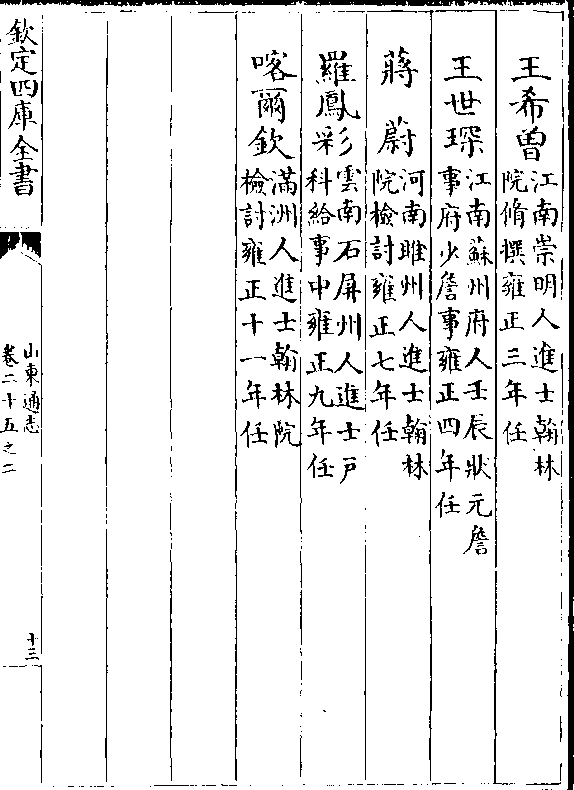 王希曾江南崇明人進士翰林
院脩撰雍正三年任
王世琛江南蘇州府人壬辰狀元詹
事府少詹事雍正四年任
蔣蔚河南睢州人進士翰林
院檢討雍正七年任
羅鳳彩雲南石屏州人進士戶
科給事中雍正九年任
喀爾欽滿洲人進士翰林院
檢討雍正十一年任
欽定四庫全書
山東通志
卷二十五之二
十三